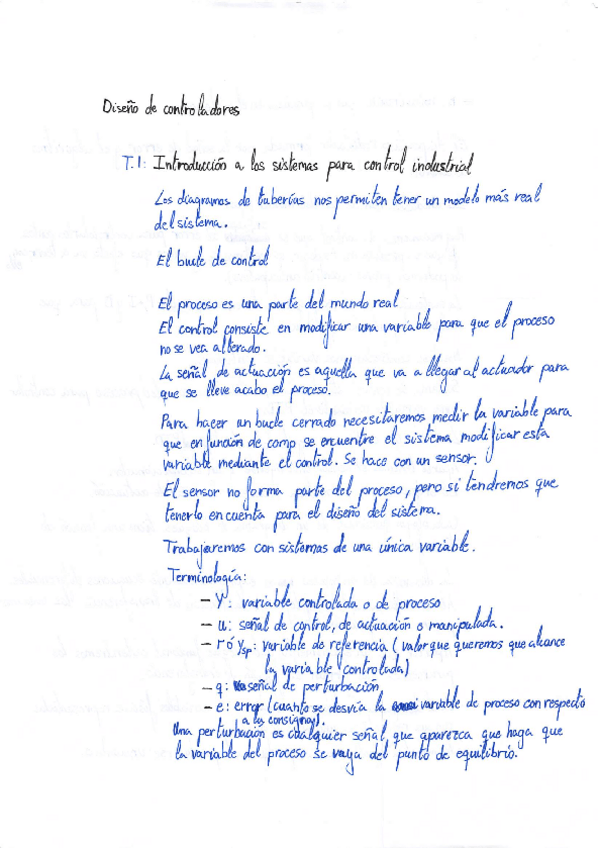 Diseño de controladores
T.1: Introducción a los sistemas para control industrial
Los diagramas de tuberías nos permiten tener un modelo más real
del sistema.
El bucle de control
El proceso es una parte del mundo real
El control consiste en modificar una variable para que el proceso
no se vea alterado.
La señal de actuación es aquella que va a llegar al actuador para
que se lleve acabo el proceso.
Para hacer un bucle cerrado necesitaremos medir la variable para
que en función de como se encuentre el sistema modificar esta
variable mediante el control. Se hace con un sensor.
El sensor no forma parte del proceso, pero si tendremos que
tenerlo en cuenta para el diseño del sistema.
Trabajaremos con sistemas de una única variable.
Terminología:
- Y: variable controlada o de proceso
- u: señal de control, de actuación o manipulada.
- r ó ysp: variable de referencia (valor que queremos que alcance
la variable controlada)
- q: señal de perturbación
- e: error (cuanto se desvía la variable de proceso con respecto
a la consigna).
Una perturbación es cualquier señal que aparezca que haga que
la variable del proceso se vaya del punto de equilibrio.